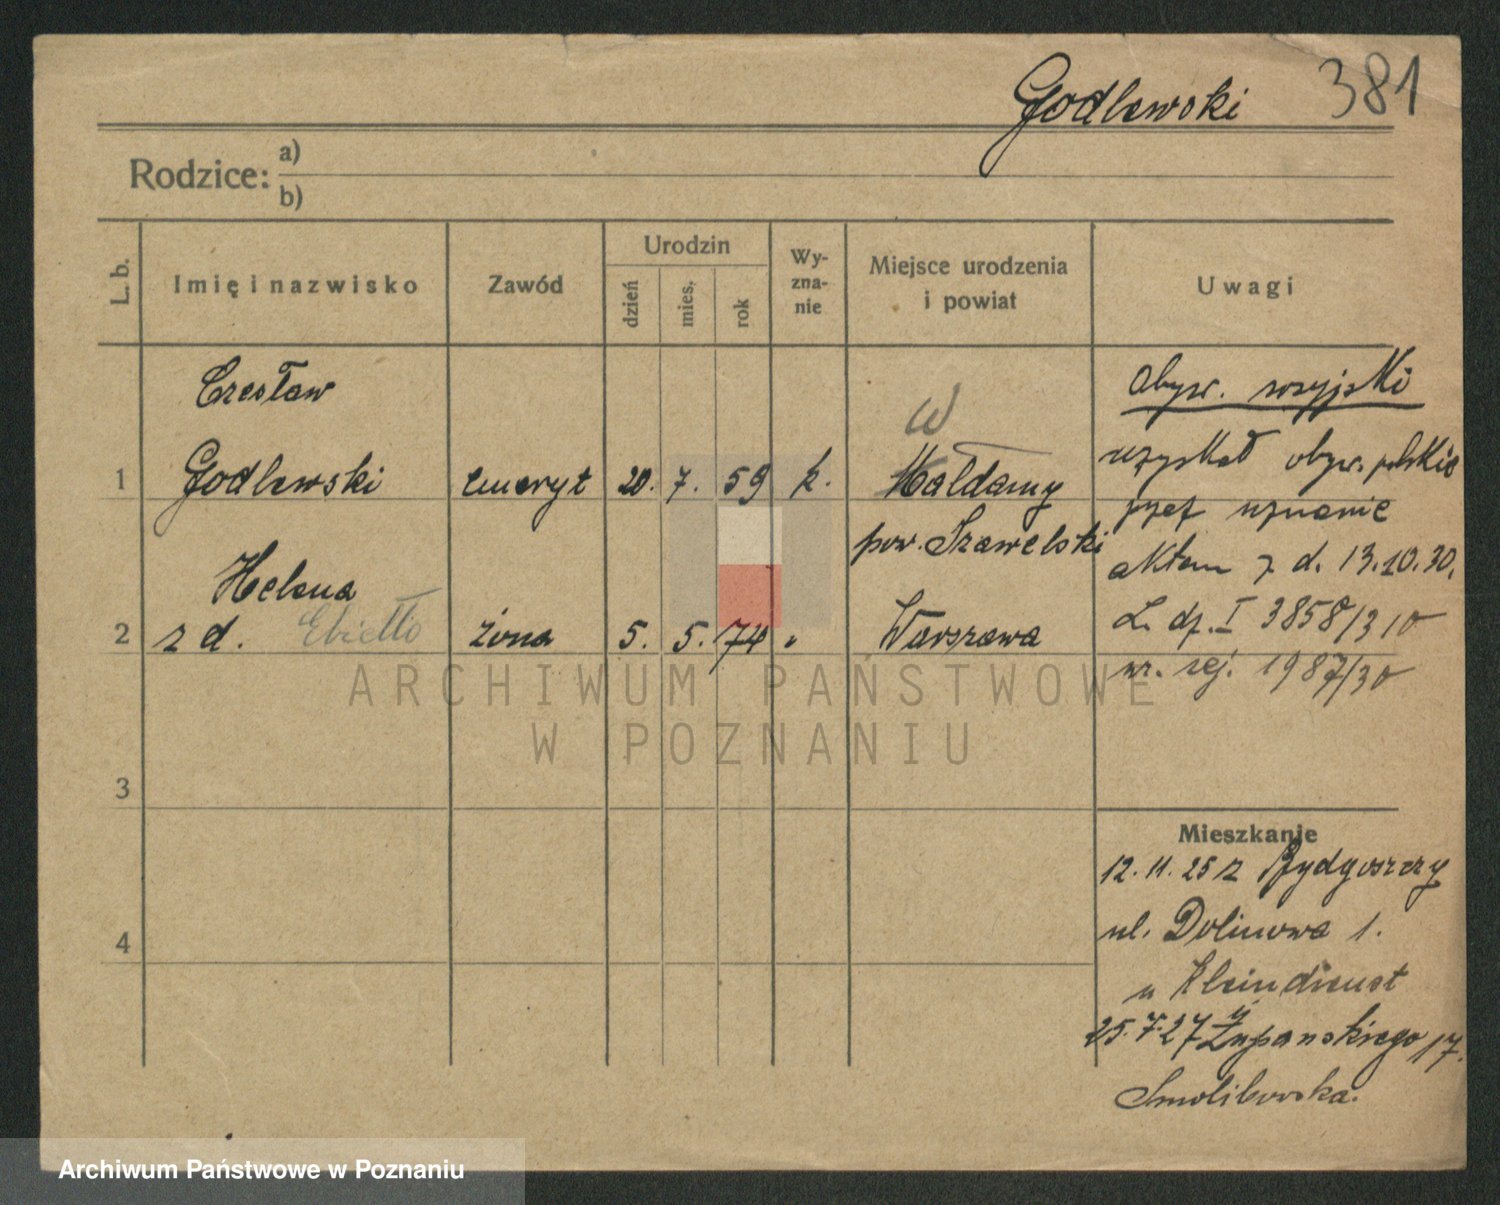 Godlewski 381
Rodzice: a)
b)
L. b. Imię i nazwisko Zawód Urodzin dzień mies. rok Wy-zna-nie Miejsce urodzenia i powiat Uwagi
Czesław
1 Godlewski emeryt 20. 7. 59 k.
W
Małdamy
pow. Szawelski
Helena
2 z d. żona 5. 5. 74 " Warszawa
3
4
obyw. rosyjski
uzyskał obyw. polskie
przez uznanie
aktem z d. 13.10.30.
L. dz. I 3858/310
nr. rej. 1987/30
Mieszkanie
12. 11. 25 z Bydgoszczy
ul. Dolinowa 1.
u Kleindienst
25. 7. 27 Żupanskiego 17.
ARCHIWUM PAŃSTWOWE
W POZNANIU
Archiwum Państwowe w Poznaniu